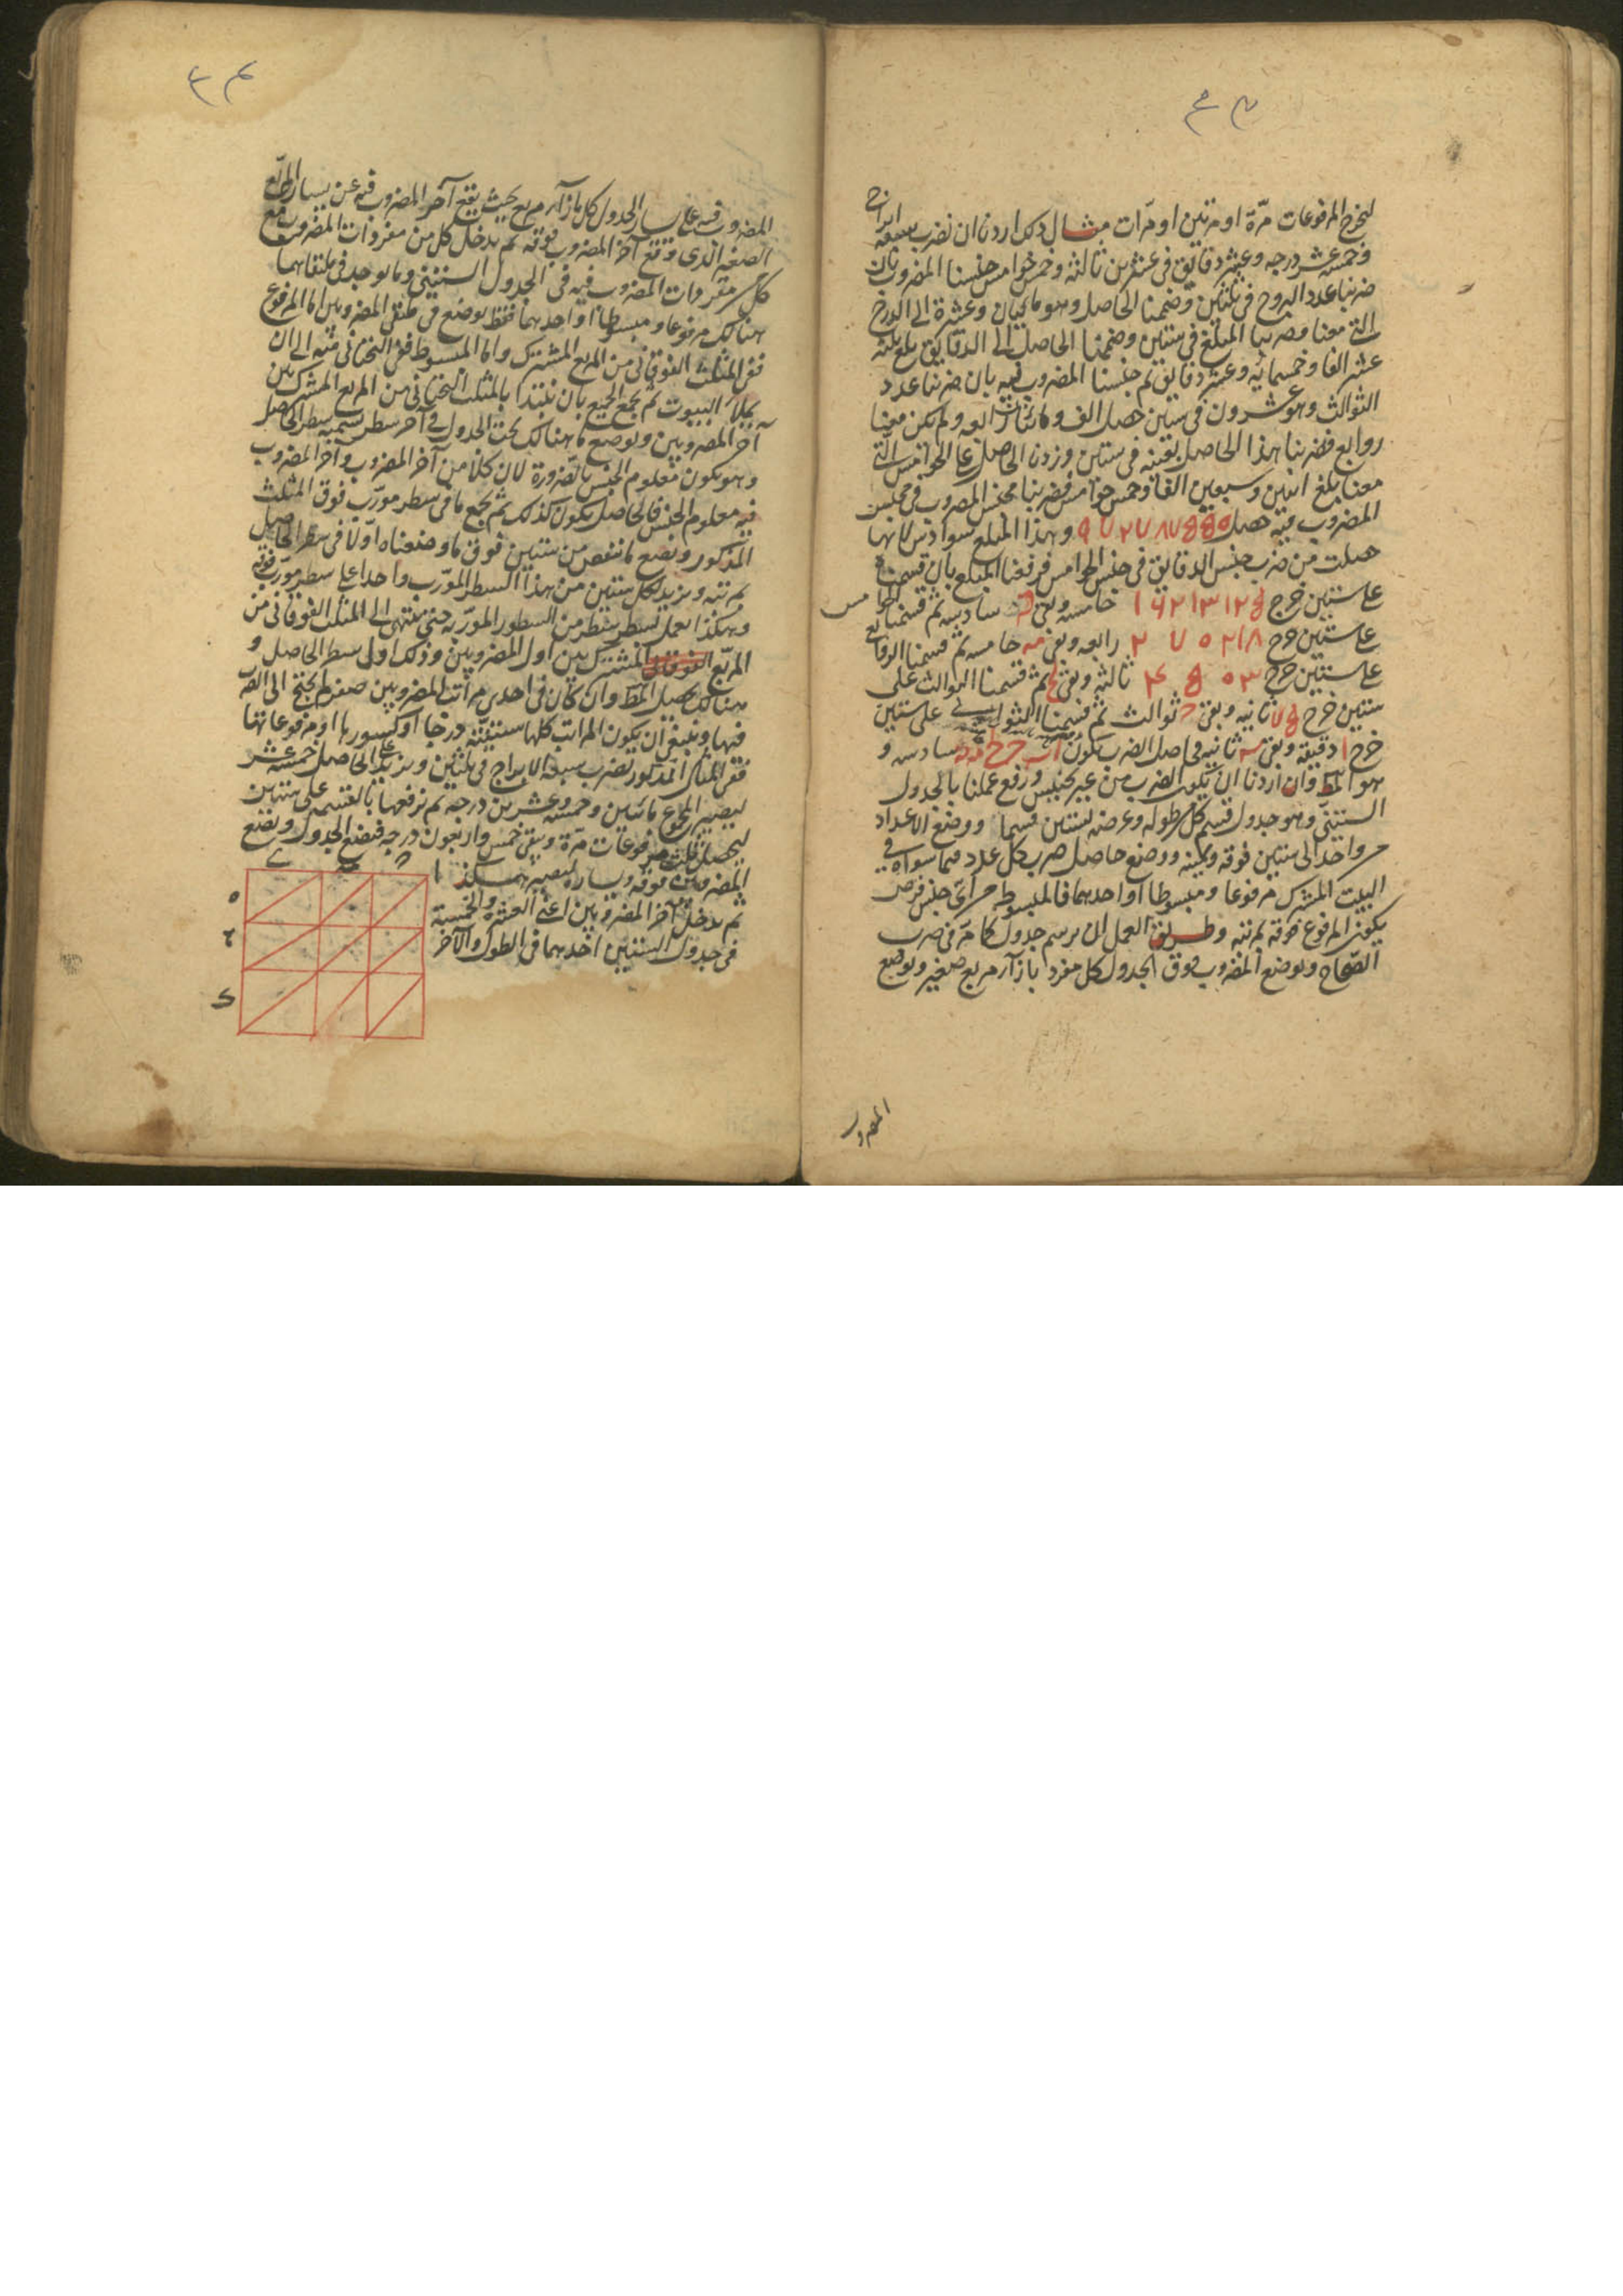 ليخرج المرفوعات مرّة او مرتين او مرّات مثال ذلك اردنا ان نضرب سبعة ابراج
وخمسة عشر درجه وعشر دقايق فى عشرين ثالثه وخمس خوامس جنسنا المضروب بان
ضربنا عدد البروج فى ثلثين وضممنا الحاصل وهو مائتان وعشرة الى الدرج
التى معنا وضربنا المبلغ فى ستين وضممنا الحاصل الى الدقايق بلغ ثلثه
عشر الفا وخمسمائه وعشر دقايق ثم جنسنا المضروب فيه بان ضربنا عدد
الثوالث وهو عشرون فى ستين حصل الف ومائتا رابعه ولم يكن معنا
روابع فضربنا هذا الحاصل بعينه فى ستين وزدنا الحاصل على الخوامس التى
معنا بلغ اثنين وسبعين الفا وخمس خوامس فضربنا مجنس المضروب فى مجنس
المضروب فيه حصل ٩٧٢٧٨٧٥٥٠ وهذا المبلغ سوادس لانها
حصلت من ضرب جنس الدقايق فى جنس الخوامس فرفعنا المبلغ بان قسمناه
على ستين خرج ١٦٢١٣١٢٥ خامسه وبقى سادسه ثم قسمنا الخوامس
على ستين خرج ٢٧٠٢١٨ رابعه وبقى مه خامسه ثم قسمنا الروابع
على ستين خرج ٤٥٠٣ ثالثه وبقى لح ثم قسمنا الثوالث على
ستين خرج ٧٥ ثانيه وبقى ج ثوالث ثم قسمنا الثوانى على ستين
خرج ا دقيقة وبقى يه ثانيه فحاصل الضرب يكون سادسه و
هو المط وان اردنا ان يكون الضرب من غير تجنيس ورفع عملنا بالجدول
الستينى وهو جدول قسم كل طوله وعرضه بستين قسما ووضع الاعداد
من واحد الى ستين فوقه ويمينه ووضع حاصل ضرب كل عدد فيما سواه فى
البيت المشترك مرفوعا ومبسوطا او احدهما فالمبسوط من اى جنس فرض
يكون المرفوع فوقه بمرتبه وطريق العمل ان يرسم جدول كما مر فى ضرب
الصحاح ويوضع المضروب فوق الجدول كل مفرد بازآء مربع صغير ويوضع
المضروب
المضروب فيه على يسار الجدول كل بازآء مربع بحيث يقع آخر المضروب فيه عن يسار المربع
الصغير الذى وقع آخر المضروب فوقه ثم يدخل كل من مفردات المضروب مع
كل من مفردات المضروب فيه فى الجدول الستينى وما يوجد فى ملتقاهما
هنالك مرفوعا ومبسوطا او احدهما فقط يوضع فى ملتقى المضروبين اما المرفوع
ففى المثلث الفوقانى من المربع المشترك واما المبسوط ففى التحتانى منه الى ان
يملا البيوت ثم يجمع الجميع بان نبتدا بالمثلث التحتانى من المربع المشترك بين
آخر المضروبين ويوضع ما هنالك تحت الجدول فى آخر سطر نسميه سطر الحاصل
وهو يكون معلوم الجنس بالضرورة لان كلا من آخر المضروب وآخر المضروب
فيه معلوم الجنس فالحاصل يكون كذلك ثم يجمع ما فى سطر مورّب فوق المثلث
المذكور ونضع ما نقص من ستين فوق ما وضعناه اولا فى سطر الحاصل
بمرتبه ونزيد لكل ستين من هذا السطر المورّب واحدا على سطر مورّب فوقه
وهكذا نعمل بسطر سطر من السطور المورّبه حتى ينتهى الى المثلث الفوقانى من
المربّع المشترك بين اول المضروبين وذلك اول سطر الحاصل و
هنالك يحصل المط وان كان فى احدى مراتب المضروبين صفر لم يحتج الى الضرب
فيها وينبغى ان يكون المراتب كلها ستينيّة درجا او كسورها او مرفوعاتها
ففى المثال المذكور نضرب سبعة الابراج فى ثلثين ونزيد على الحاصل خمسة عشر
ليصير المجموع مائتين وخمسة وعشرين درجه ثم نرفعها بالقسمه على ستين
ليحصل ثلث مرفوعات مرّة ويبقى خمس واربعون درجه فنضع الجدول ونضع
المضروبين فوقه ويساره ليصير هكذا
ثم ندخل آخر المضروبين اعنى العشرة والخمسة
فى جدول الستين احدهما فى الطول والآخر